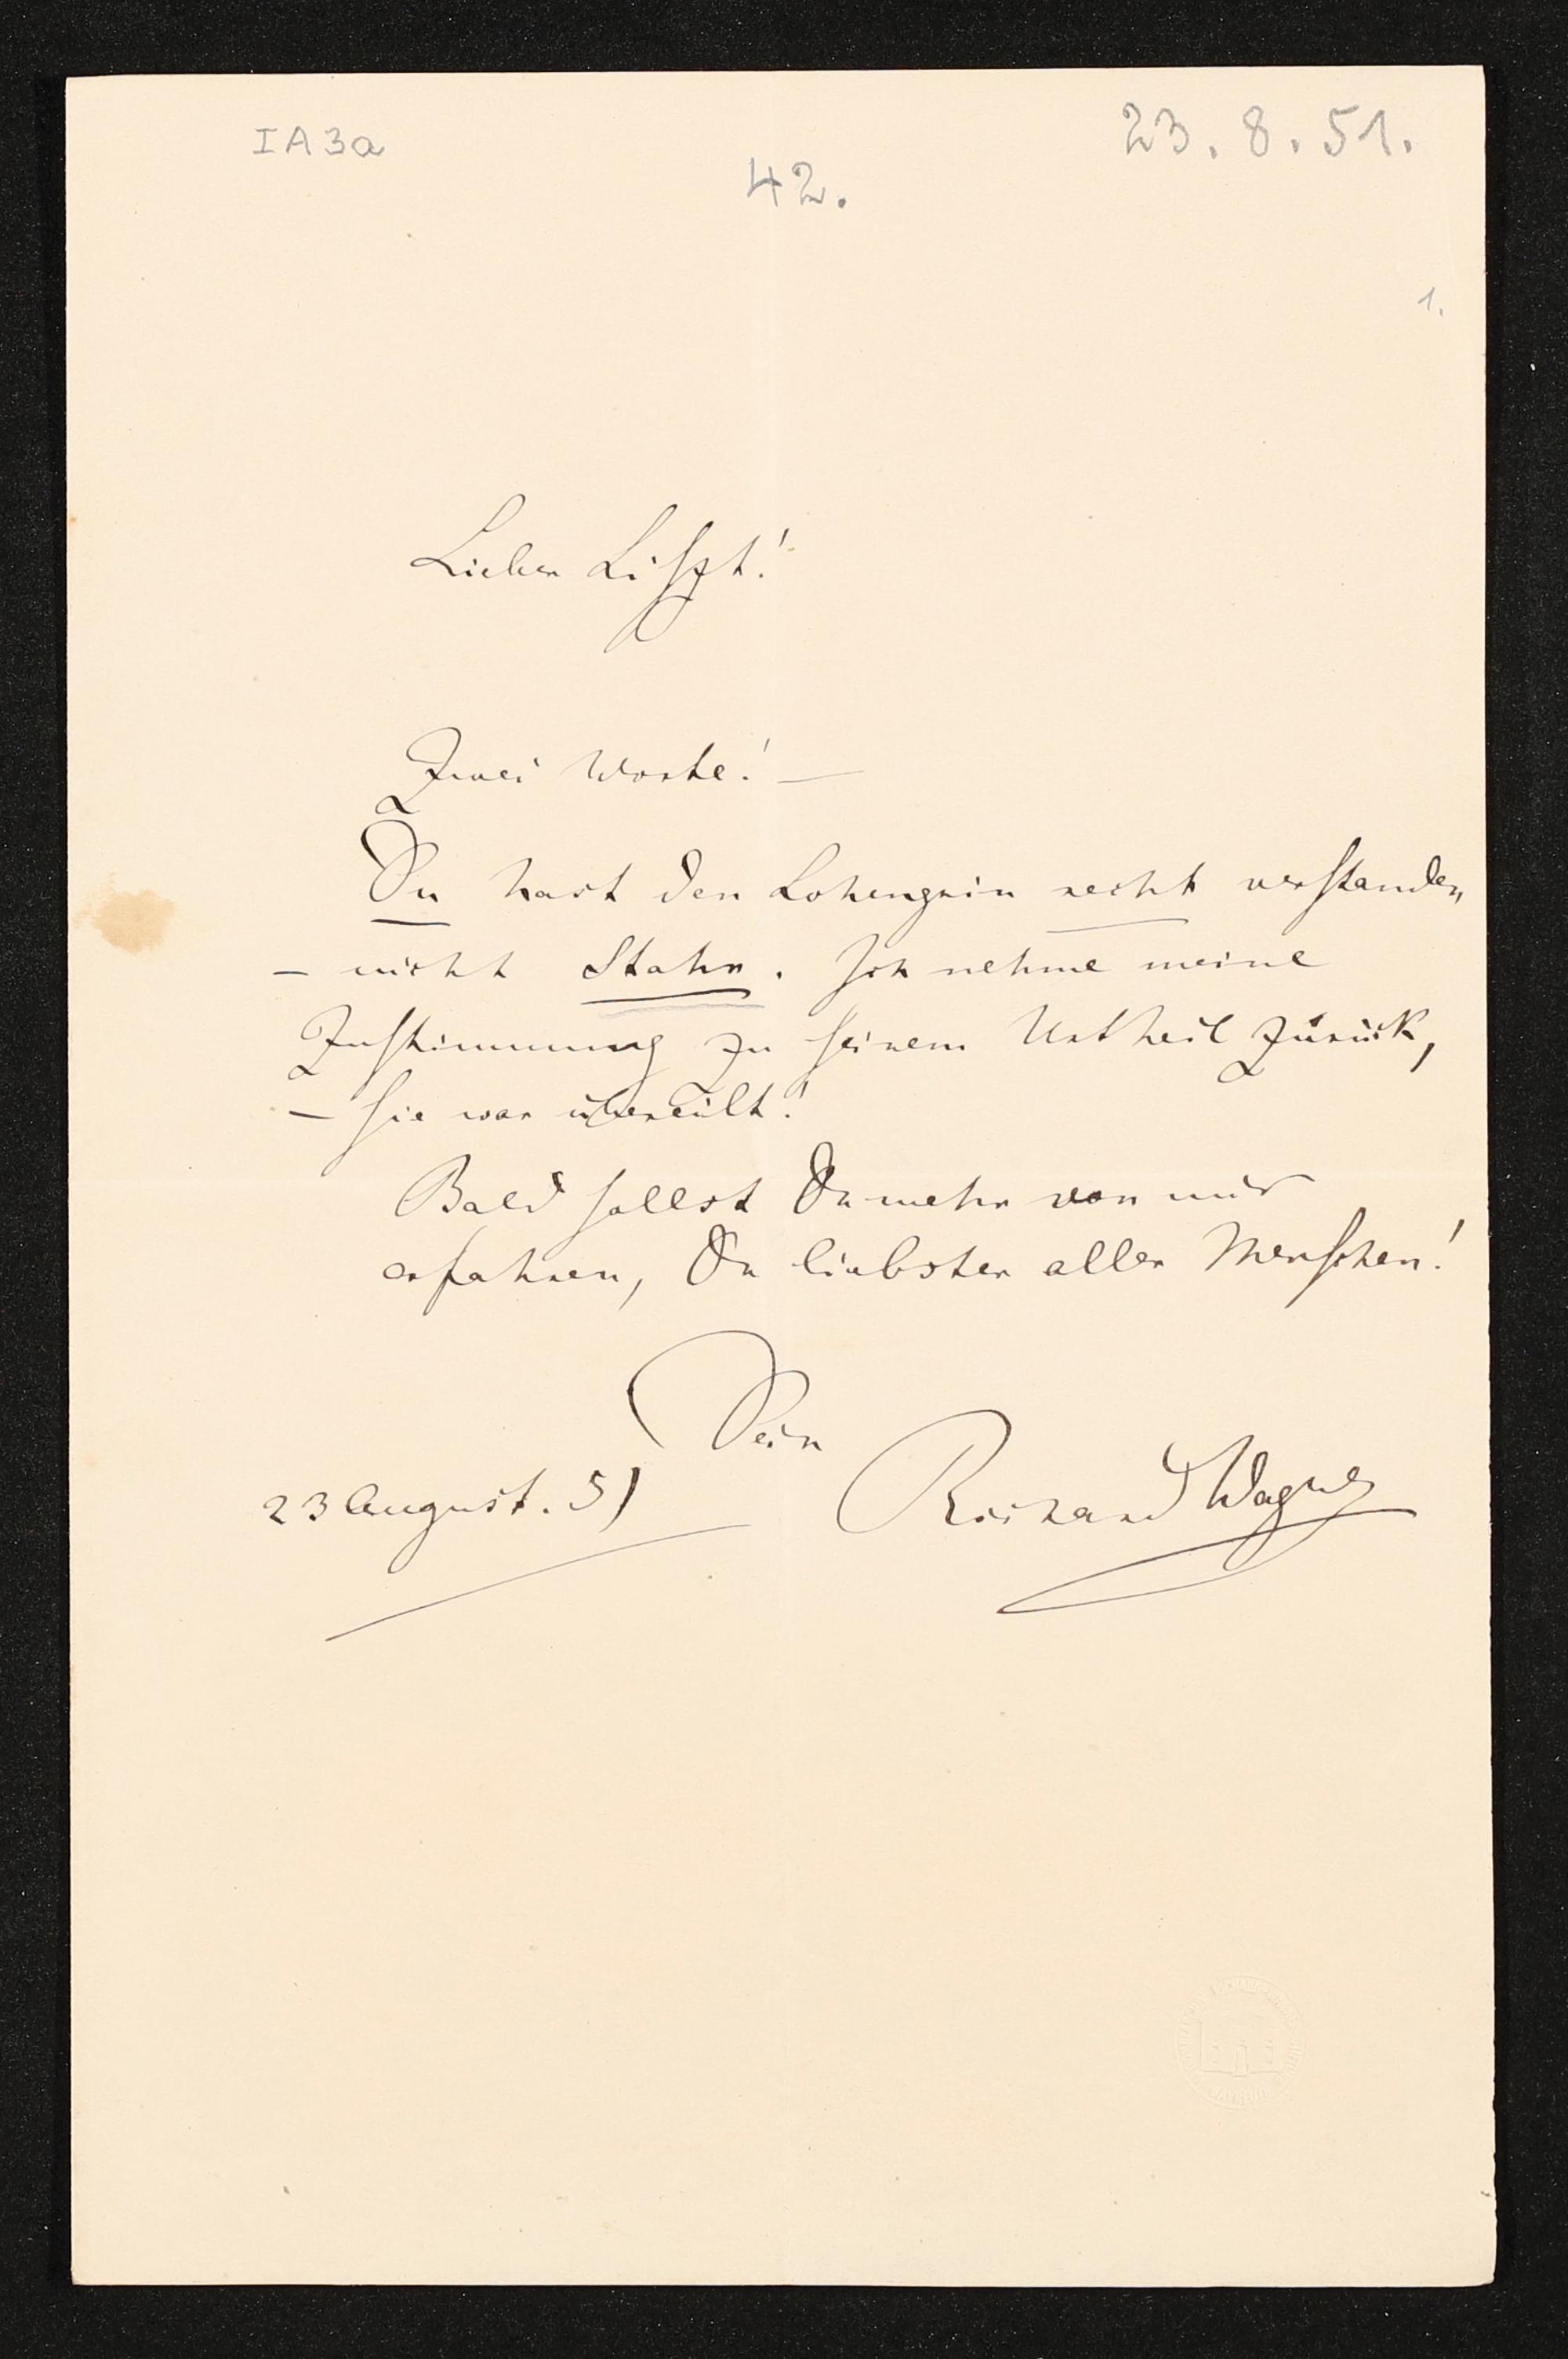 IA3a
23.8.51.
42.
1.
Lieber Liszt!
Zwei Worte! —
Du hast den Lohengrin recht verstanden
— nicht Stahr. Ich nehme meine
Zustimmung zu seinem Urtheil zurück,
— sie war übereilt!
Bald sollst Du mehr von mir
erfahren, Du liebster aller Menschen!
Dein
23 August. 51
Richard Wagner